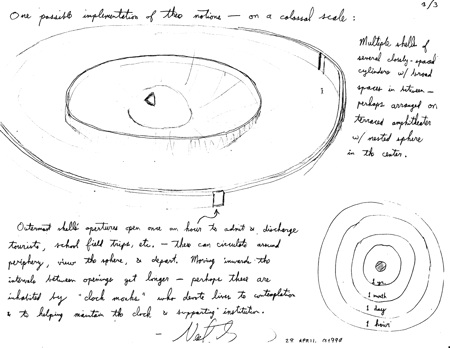 One possible implementation of these notions — on a colossal scale:
2/3
Multiple shells of
several closely-spaced
cylinders w/ broad
spaces in between —
perhaps arranged on
terraced amphitheater
w/ nested sphere
in the center.
Outermost shell's apertures open once an hour to admit & discharge
tourists, school field trips, etc. — these can circulate around
periphery, view the sphere, & depart. Moving inward the
intervals between openings get longer — perhaps these are
inhabited by "clock monks" who devote lives to contemplation
& to helping maintain the clock & supporting institution.
1 yr
1 month
1 day
1 hour
29 APRIL